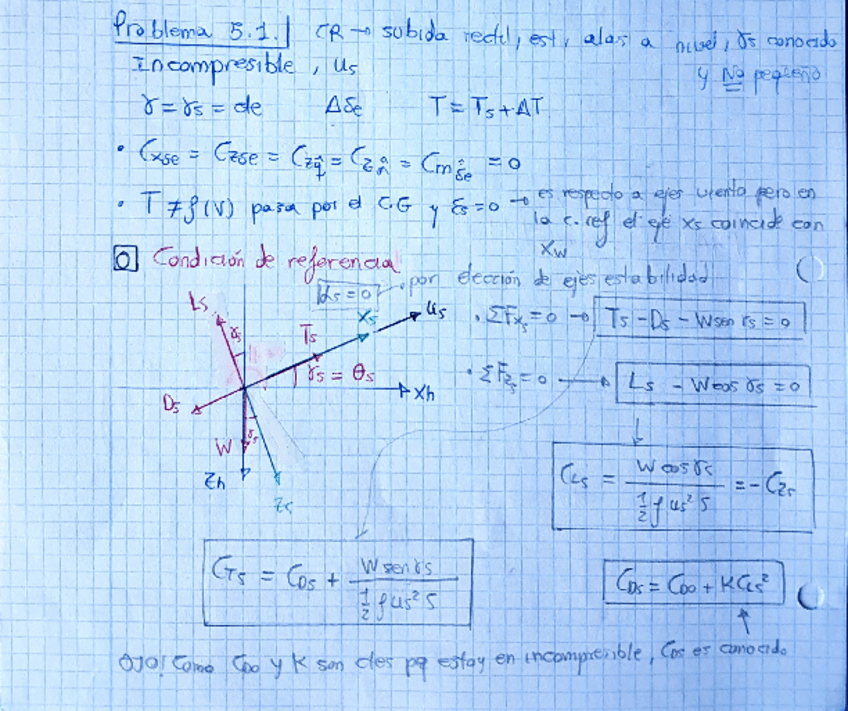 Problema 5.1. CR → subida rectil, est, alas a nivel, γs conocido
Incompresible, us y No pequeño
γ = γs = cte Δδe T = Ts + ΔT
• Cxδe = Czδe = Czq̂ = Czα̂ = Cmδ̇e = 0
• T ≠ f(V) pasa por el CG y εs = 0 → es respecto a ejes viento pero en
la c. ref el eje xs coincide con
xw
0 Condición de referencia
αs = 0 por elección de ejes estabilidad
Ls γs Ts xs us
• ΣFxs = 0 → Ts - Ds - W sen γs = 0
γs = θs
xh
• ΣFzs = 0 → Ls - W cos γs = 0
Ds
W γs
zh
zs
CLs = W cos γs / ½ ρ us² S = -Czs
CTs = CDs + W sen γs / ½ ρ us² S
CDs = CD0 + K CLs²
OJO! Como CD0 y K son ctes pq estoy en incompresible, CDs es conocido